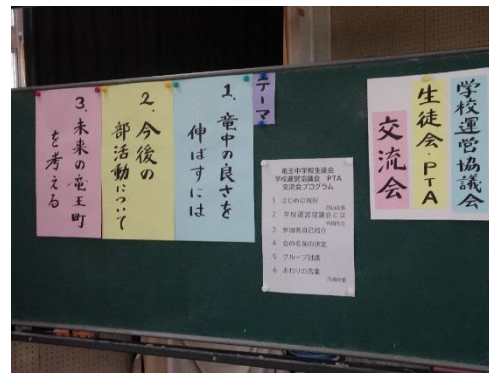 学校運営協議会
生徒会・PTA
交流会
テーマ
1、竜中の良さを
伸ばすには
2、今後の
部活動について
3、未来の竜王町
を考える
竜王中学校生徒会
学校運営協議会 PTA
交流会プログラム
1 はじめの挨拶
2 学校運営協議会とは
3 参加者自己紹介
4 会の名前の決定
5 グループ討議
6 おわりの言葉